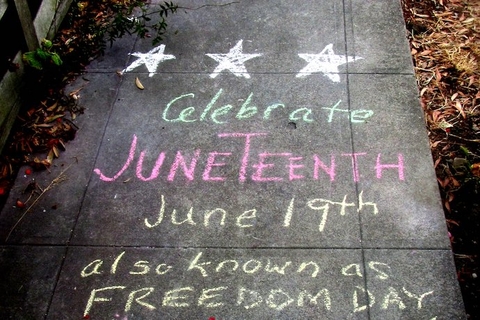 Celebrate
JUNETEENTH
June 19th
also known as
FREEDOM DAY